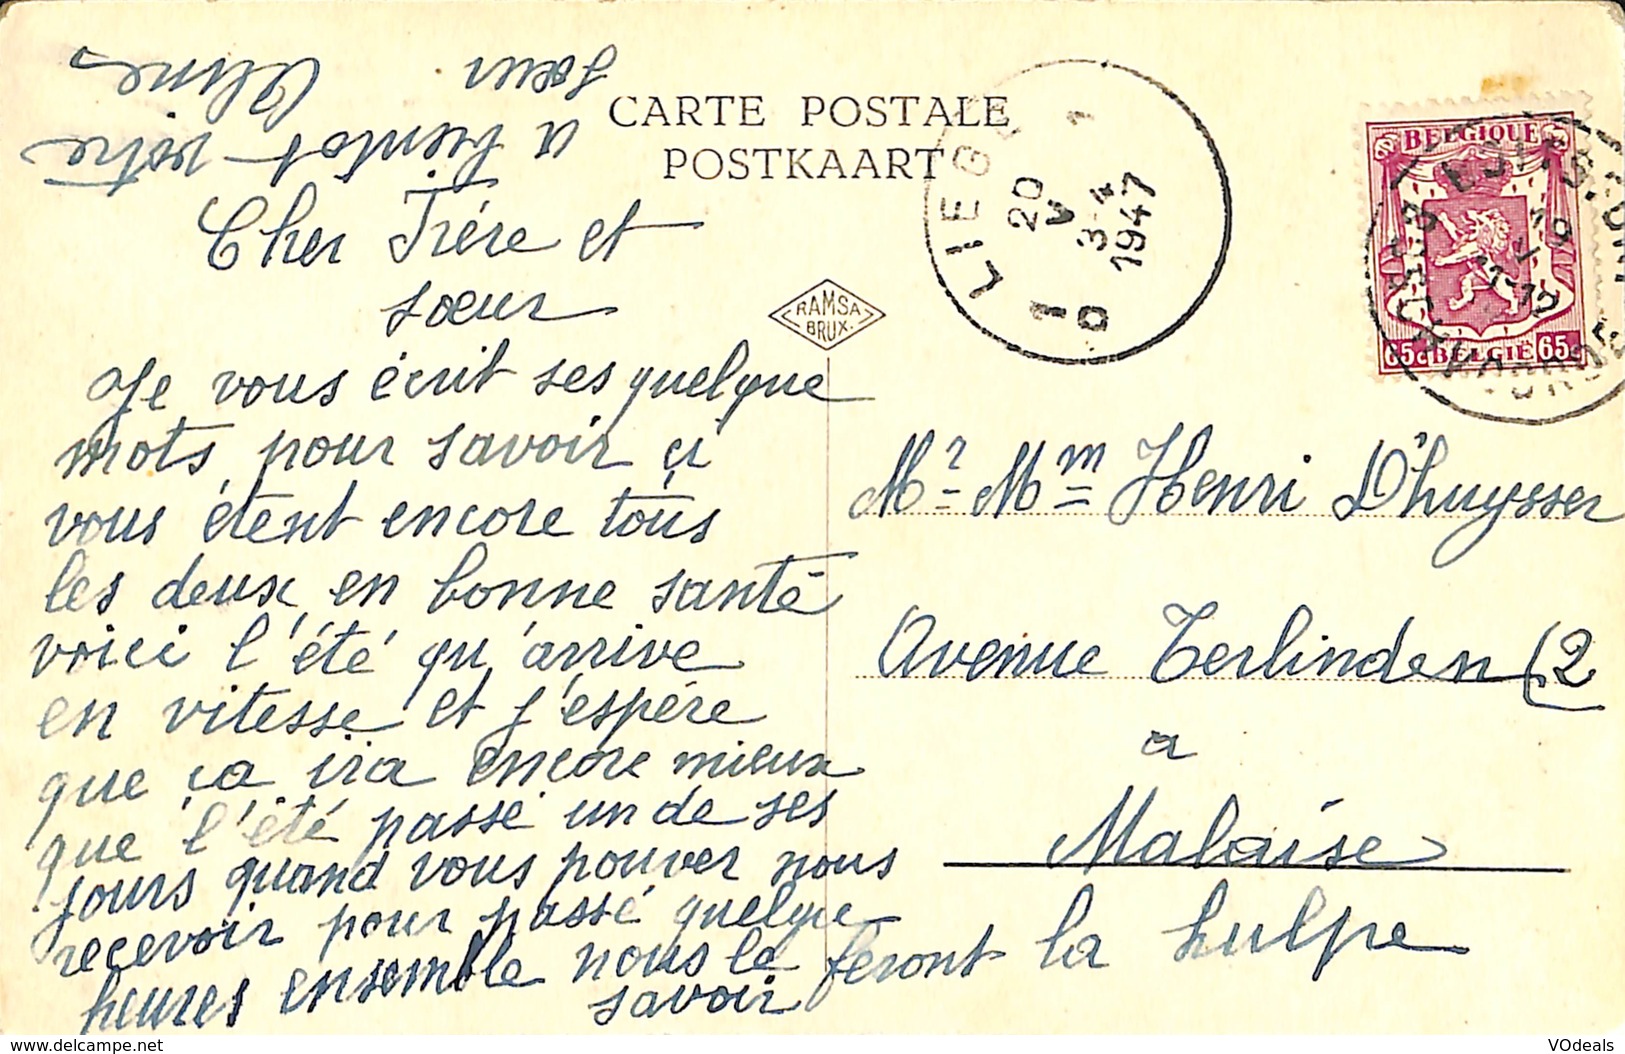 CARTE POSTALE
POSTKAART
RAMSA
BRUX.
LIEGE 1
20
V
3-4
1947
1 D
BELGIQUE
65c BELGIË 65c
19
V
11-12
Cher Frére et
sœur
Je vous écrit ses quelque
mots pour savoir çi
vous étent encore tous
les deux en bonne santé
voici l'été qu'arrive
en vitesse et j'espére
que ça ira encore mieux
que l'été passé un de ses
jours quand vous pouver nous
recevoir pour passé quelque
heures ensemble nous le feront
savoir
a bientot votre
sœur
Mr- Mm Henri D'huysser
Avenue Terlinden (2
a
Malaise
la hulpe
VOdeals
www.delcampe.net